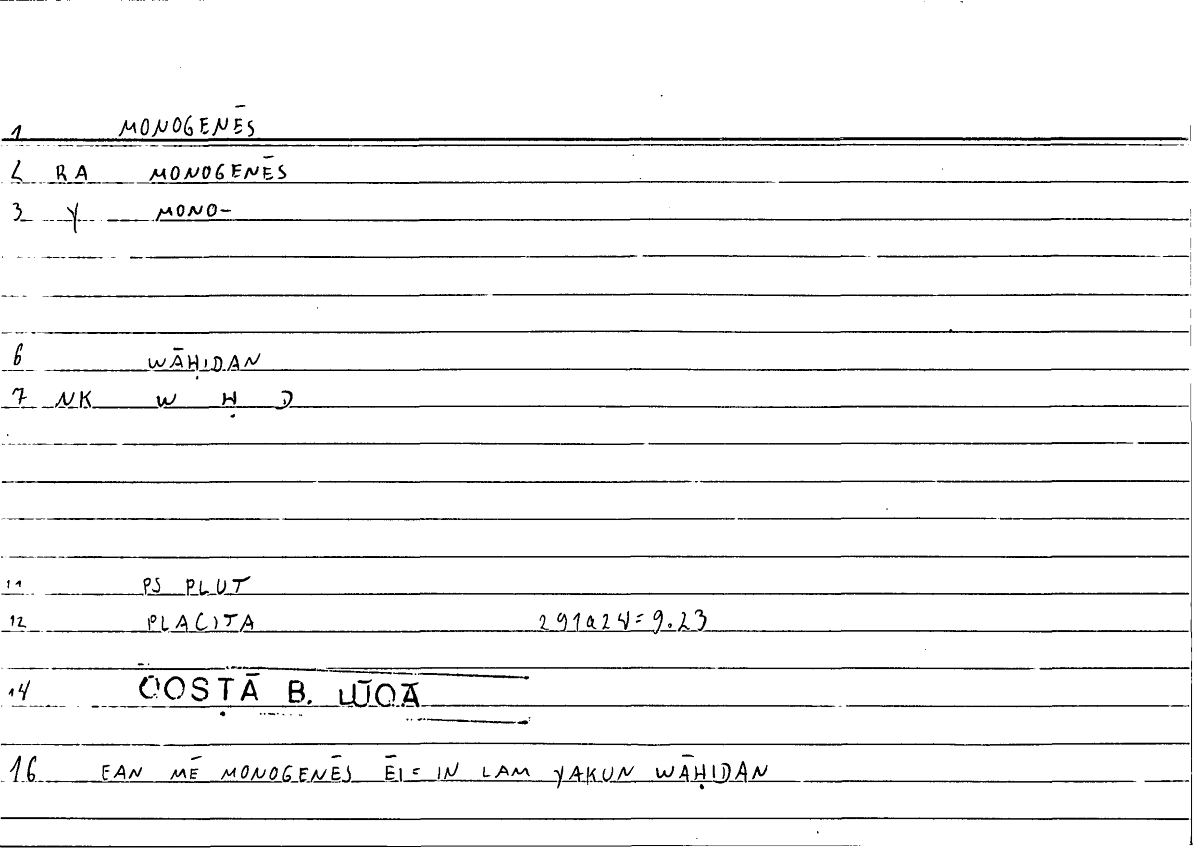 1 MONOGENĒS
2 RA MONOGENĒS
3 Y MONO-
6 WĀḤIDAN
7 NK W Ḥ D
11 PS PLUT
12 PLACITA 291a24=9.23
14 QOSṬĀ B. LŪQĀ
16 EAN MĒ MONOGENĒS ĒI = IN LAM YAKUN WĀḤIDAN